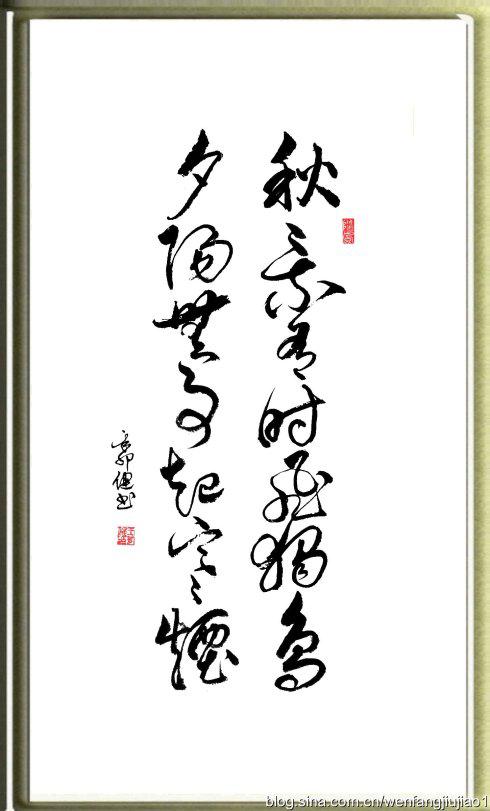 秋景有时飛獨鳥
夕陽無事起寒煙
辛卯健书
blog.sina.com.cn/wenfangjiujiao1